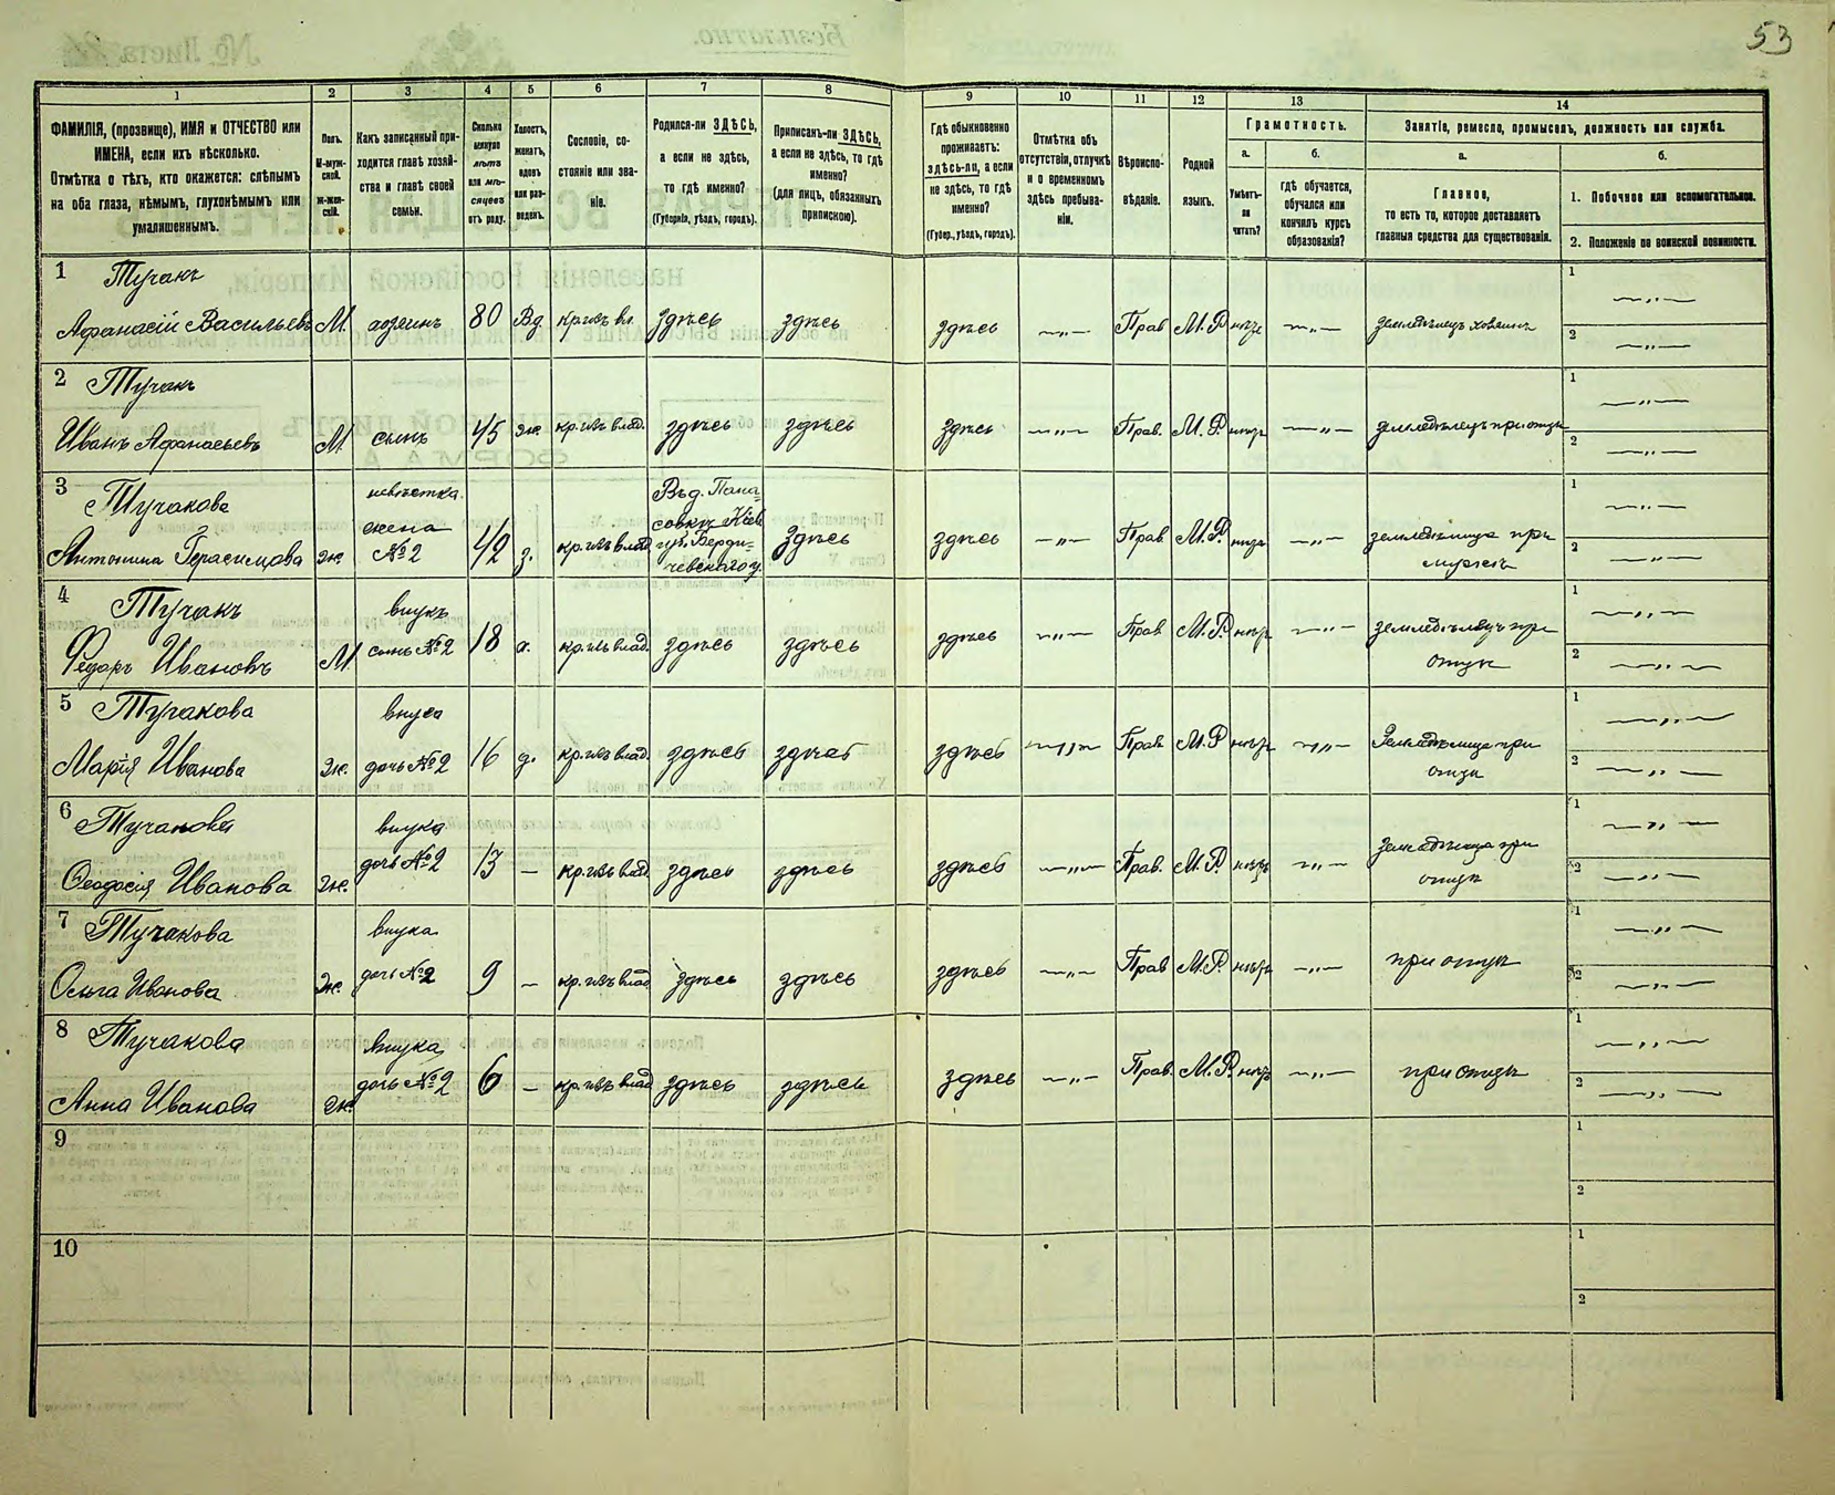 53
1 2 3 4 5 6 7 8 9 10 11 12 13 14
ФАМИЛІЯ, (прозвище), ИМЯ и ОТЧЕСТВО или
ИМЕНА, если ихъ нѣсколько.
Отмѣтка о тѣхъ, кто окажется: слѣпымъ
на оба глаза, нѣмымъ, глухонѣмымъ или
умалишеннымъ.
Полъ.
М-муж-
ской.
ж-жен-
скій.
Какъ записанный при-
ходится главѣ хозяй-
ства и главѣ своей
семьи.
Сколько
минуло
лѣтъ
или мѣ-
сяцевъ
отъ роду.
Холостъ,
женатъ,
вдовъ
или раз-
веденъ.
Сословіе, со-
стояніе или зва-
ніе.
Родился-ли ЗДѢСЬ,
а если не здѣсь,
то гдѣ именно?
(Губернія, уѣздъ, городъ).
Приписанъ-ли ЗДѢСЬ,
а если не здѣсь, то гдѣ
именно?
(для лицъ, обязанныхъ
припискою).
Гдѣ обыкновенно
проживаетъ:
здѣсь-ли, а если
не здѣсь, то гдѣ
именно?
(Губер., уѣздъ, городъ).
Отмѣтка объ
отсутствіи, отлучкѣ
и о временномъ
здѣсь пребыва-
ніи.
Вѣроиспо-
вѣданіе.
Родной
языкъ.
Грамотность.
а.
Умѣетъ-
ли
читать?
б.
гдѣ обучается,
обучался или
кончилъ курсъ
образованія?
Занятіе, ремесло, промыселъ, должность или служба.
а.
Главное,
то есть то, которое доставляетъ
главныя средства для существованія.
б.
1. Побочное или вспомогательное.
2. Положеніе по воинской повинности.
1 Тучакъ
Афанасій Васильевъ М. хозяинъ 80 Вд. кр. изъ вл. здѣсь здѣсь здѣсь —„— Прав М. Р. нѣтъ —„— земледѣлецъ хозяинъ
1 —„—
2 —„—
2 Тучакъ
Иванъ Афанасьевъ М сынъ 45 ж. кр. изъ влад. здѣсь здѣсь здѣсь —„— Прав. М. Р. нѣтъ —„— земледѣлецъ при отцѣ
1 —„—
2 —„—
3 Тучакова
невѣстка
жена
№ 2
Антонина Герасимова ж. 42 з. кр. изъ влад
Въ д. Пана-
совкѣ Кіев.
губ. Берди-
чевскаго у.
здѣсь здѣсь —„— Прав М. Р. нѣтъ —„— земледѣлица при
мужѣ
1 —„—
2 —„—
4 Тучакъ внукъ
Федоръ Ивановъ М. сынъ № 2 18 х. кр. изъ влад. здѣсь здѣсь здѣсь —„— Прав М. Р. нѣтъ —„— земледѣлецъ при
отцѣ
1 —„—
2 —„—
5 Тучакова внука
Марія Иванова ж. дочь № 2 16 д. кр. изъ влад. здѣсь здѣсь здѣсь —„— Прав М. Р нѣтъ —„— Земледѣлица при
отцѣ
1 —„—
2 —„—
6 Тучакова внука
Феодосія Иванова ж. дочь № 2 13 — кр. изъ влад здѣсь здѣсь здѣсь —„— Прав. М. Р. нѣтъ —„— Земледѣлица при
отцѣ
1 —„—
2 —„—
7 Тучакова внука
Ольга Иванова ж. дочь № 2 9 — кр. изъ влад здѣсь здѣсь здѣсь —„— Прав М. Р. нѣтъ —„— при отцѣ
1 —„—
2 —„—
8 Тучакова внука
Анна Иванова ж. дочь № 2 6 — кр. изъ влад здѣсь здѣсь здѣсь —„— Прав. М. Р. нѣтъ —„— при отцѣ
1 —„—
2 —„—
9
1
2
10
1
2